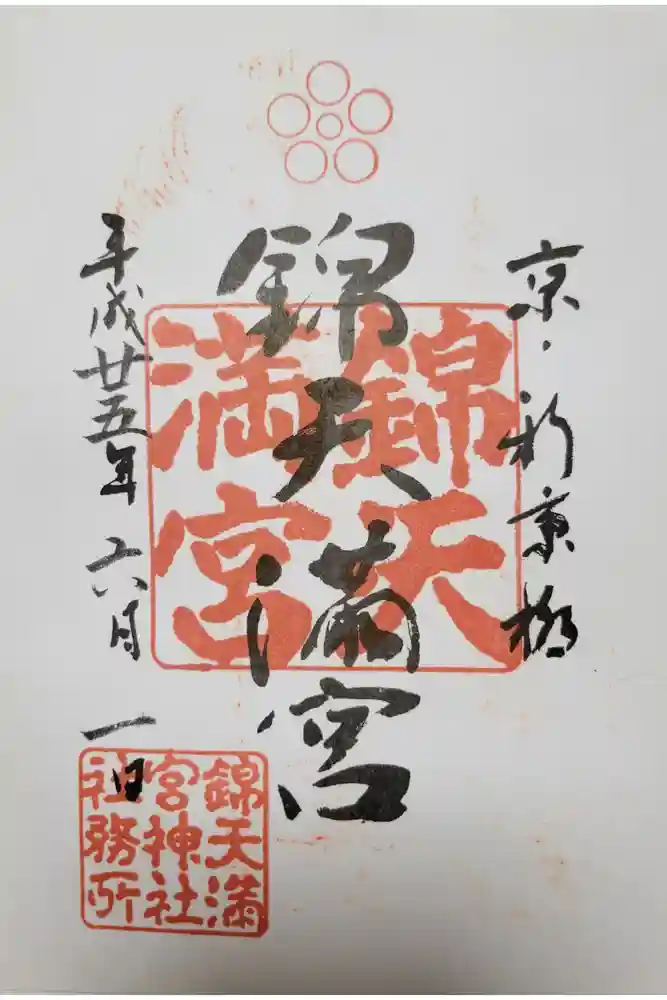 京・新京極
錦天満宮
平成廿五年 六月 一日
錦天
満宮
錦天満
宮神社
社務所